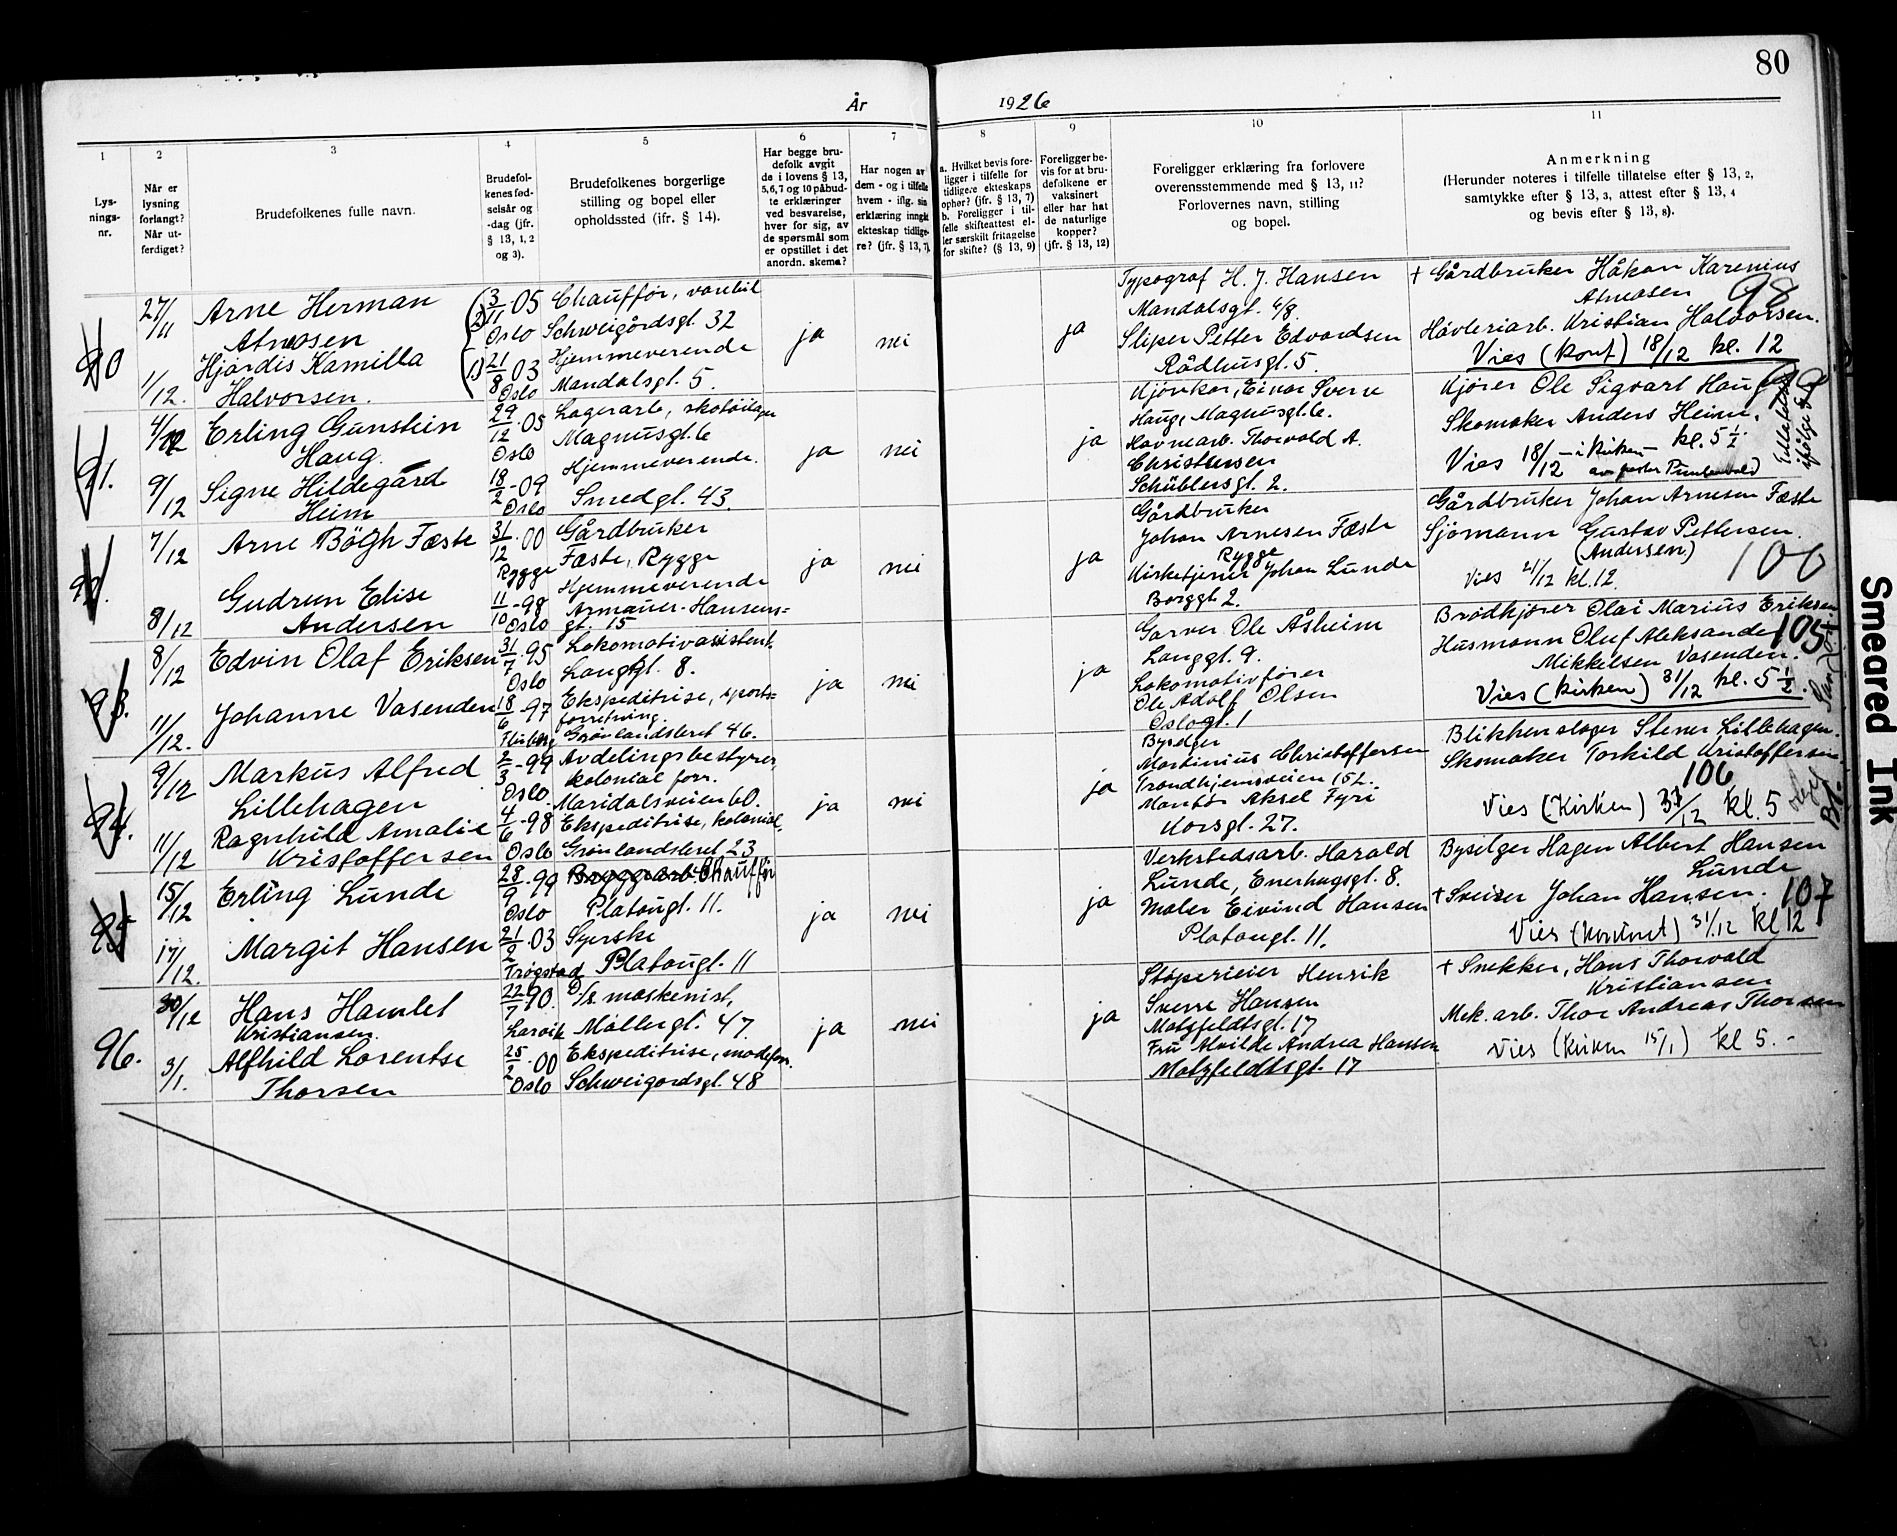 80
År 1926
1
2
3
4
5
6
7
8
9
10
11
Lys-
nings-
nr.
Når er
lysning
forlangt?
Når ut-
ferdiget?
Brudefolkenes fulle navn.
Brudefol-
kenes fød-
selsår og
-dag (jfr.
§ 13, 1, 2
og 3).
Brudefolkenes borgerlige
stilling og bopel eller
opholdssted (jfr. § 14).
Har begge bru-
defolk avgit
de i lovens § 13,
5,6,7 og 10 påbud-
te erklæringer
ved besvarelse,
hver for sig, av
de spørsmål som
er opstillet i det
anordn. skema?
Har nogen av
dem - og i tilfelle
hvem - iflg. sin
erklæring inngåt
ekteskap tidlige-
re? (jfr. § 13, 7)
a. Hvilket bevis fore-
ligger i tilfelle for
tidligere ekteskaps
ophør? (jfr. § 13, 7)
b. Foreligger i til-
felle skifteattest el-
ler særskilt fritagelse
for skifte? (§ 13, 9)
Foreligger be-
vis for at bru-
defolkene er
vaksinert
eller har hat
de naturlige
kopper?
(jfr. § 13, 12)
Foreligger erklæring fra forlovere
overensstemmende med § 13, 11?
Forlovernes navn, stilling
og bopel.
Anmerkning
(Herunder noteres i tilfelle tillatelse efter § 13, 2,
samtykke efter § 13, 3, attest efter § 13, 4
og bevis efter § 13, 8).
90
27/11
Arne Herman
Atneosen
(2) 3/11 05
Oslo
Chauffør, varebil
Schweigårdsgt. 32
1/12.
Hjørdis Kamilla
Halvorsen.
(1) 21/8 03
Oslo
Hjemmeverende
Mandalsgt. 5.
ja
nei
ja
Typograf H. J. Hansen
Mandalsgt. 6/8.
Sliper Petter Edvardsen
Rådhusgt. 5.
+ Gårdbruker Håkon Karenius
Atneosen
98
Høvleriarb. Kristian Halvorsen.
Vies (kont) 18/12 kl. 12
91.
4/12
Erling Gunstein
Haug.
29/12 05
Oslo
Lagerarb, skotøilager
Magnusgt. 6
9/12
Signe Hildegård
Heim
18/2 - 09
Oslo
Hjemmeverende.
Smedgt. 43.
ja
nei
ja
Kjørekar, Einar Sverre
Haug, Magnusgt. 6.
Havnearb. Thorvald A.
Christensen
Schüblersgt. 2.
Kjører Ole Sigvart Haug
99
Skomaker Anders Heim.
Vies 18/12 - i kirken - kl. 5 1/2.
92.
7/12
Arne Bögh Fæste
31/12 00
Rygge
Gårdbruker
Fæste, Rygge
8/12
Gudrun Elise
Andersen
11/10 - 98
Oslo
Hjemmeverende
Armauer-Hansens-
gt. 15
ja
nei
ja
Gårdbruker
Johan Arnesen Fæste
Rygge
Kirketjener Johan Lunde
Borggt. 2.
Gårdbruker Johan Arnesen Fæste
Sjømann Gustav Pettersen.
(Andersen)
100
Vies 21/12 kl. 12.
93.
8/12
Edvin Olaf Eriksen
31/7 95
Oslo
Lokomotivassistent.
Langgt. 8.
11/12.
Johanne Vasenden
18/6 - 97
Ekspeditrise, sports-
forretning.
Grønlandsleret 46.
ja
nei
ja
Garver Ole Åsheim
Langgt. 9.
Lokomotivfører
Ole Adolf Olsen
Oslogt. 1
Brødkjører Olai Marius Eriksen
Husmann Oluf Aleksander
105
Mikkelsen Vasenden.
Vies (kirken) 31/12 kl. 5 1/2.
94.
9/12
Markus Alfred
Lillehagen
2/3 - 99
Oslo
Avdelingsbestyrer,
kolonial forr.
Maridalsveien 60.
11/12
Ragnhild Amalie
Kristoffersen
4/6 - 98
Oslo
Ekspeditrise, kolonial,
Grønlandsleret 23
ja
nei
ja
Byselger
Martinius Christoffersen
Trondhjemsveien 152.
Montør Aksel Fyri
Korsgt. 27.
Blikkenslager Stener Lillehagen.
Skomaker Torkild Kristoffersen
106
Vies (Kirken) 31/12 kl. 5
95
15/12
Erling Lunde
28/9 99
Oslo
Bryggearb. Chauffør
Platougt. 11.
17/12.
Margit Hansen
21/2 03
Trøgstad
Syerske
Platougt. 11
ja
nei
ja
Verkstedsarb. Harald
Lunde, Enerhaugsgt. 8.
Maler Eivind Hansen
Platougt. 11.
Byselger Hagen Albert Hansen
Lunde
+ Sveiser Johan Hansen.
107
Vies (kontoret) 31/12 kl 12
96.
30/12
Hans Hamlet
Kristiansen
22/7 90.
Larvik
D/s. maskenist,
Møllergt. 47
3/1.
Alfhild Lorentse
Thorsen
25/2 00
Oslo
Ekspeditrise, modeforr.
Schweigaardsgt. 48
ja
nei
ja
Støperieier Henrik
Sverre Hansen
Motzfeldtsgt. 17
Fru Alvilde Andrea Hansen
Motzfeldtsgt. 17
+ Snekker, Hans Thorvald
Kristiansen
Mek. arb. Thor Andreas Thorsen
Vies (Kirken 15/1) kl 5. -
Smeared Ink